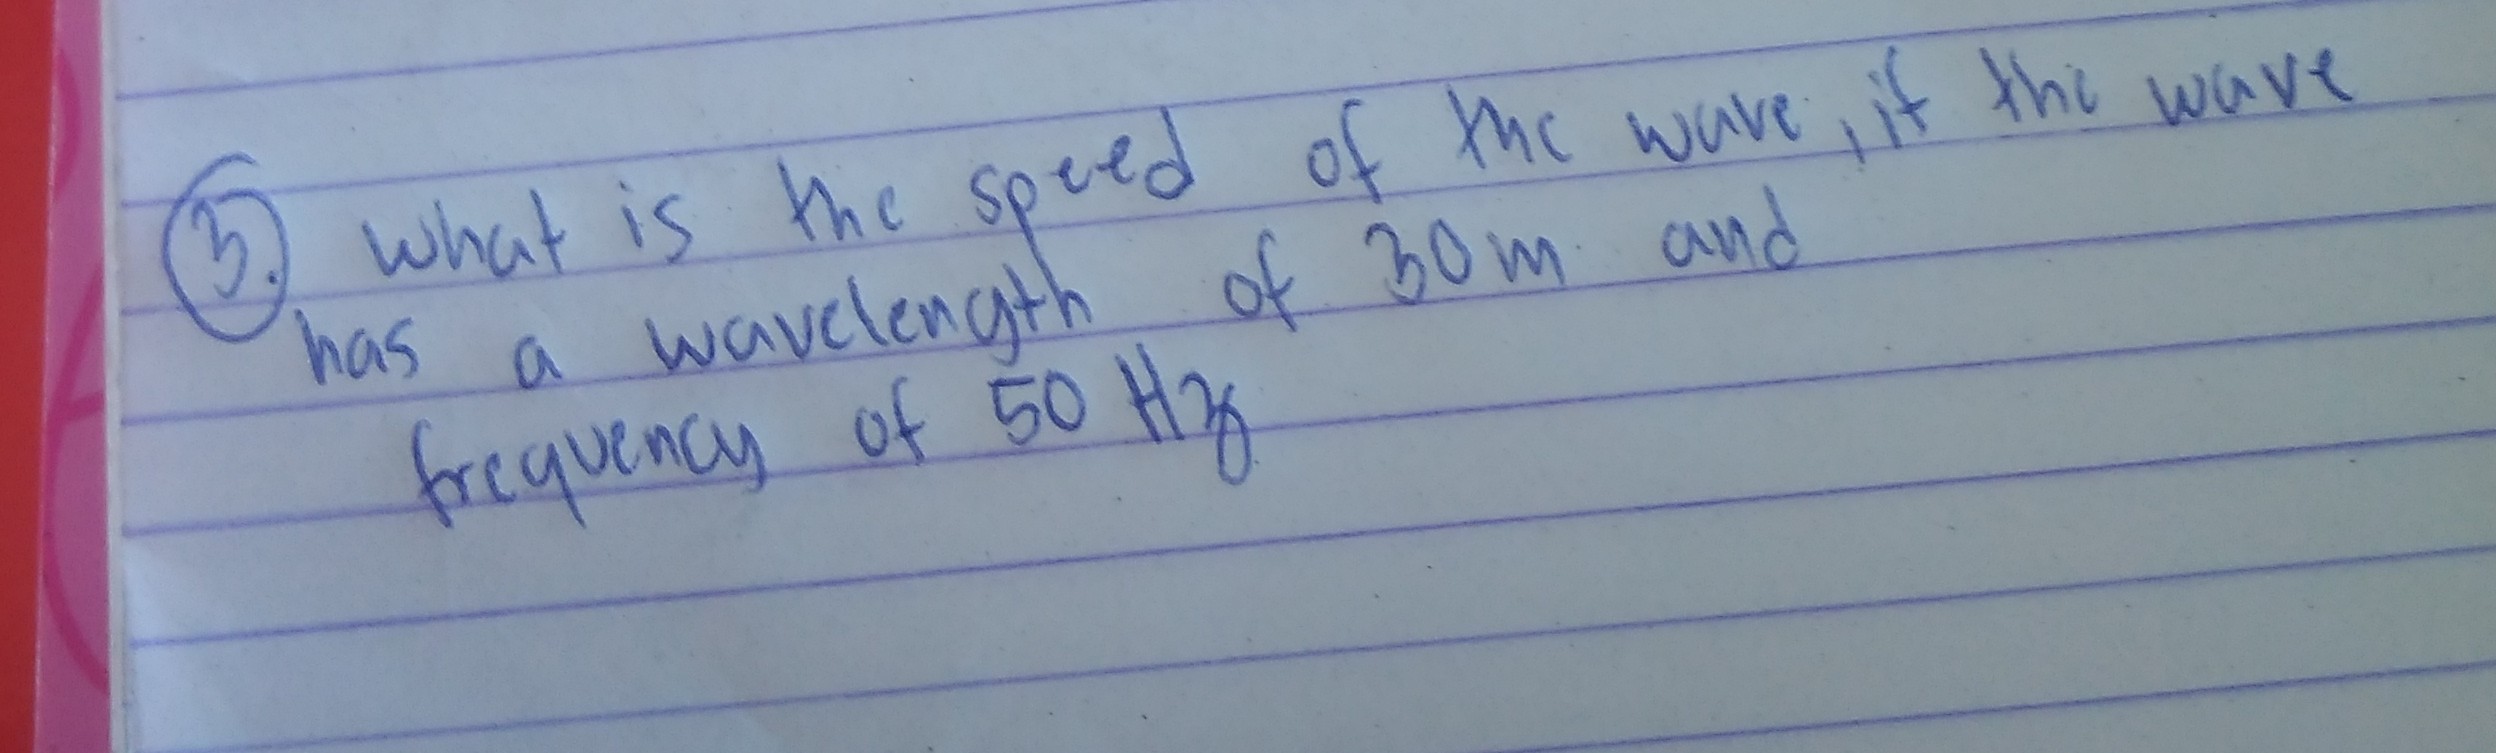 3. What is the speed of the wave, if the wave
has a wavelength of 30m and
frequency of 50 Hz